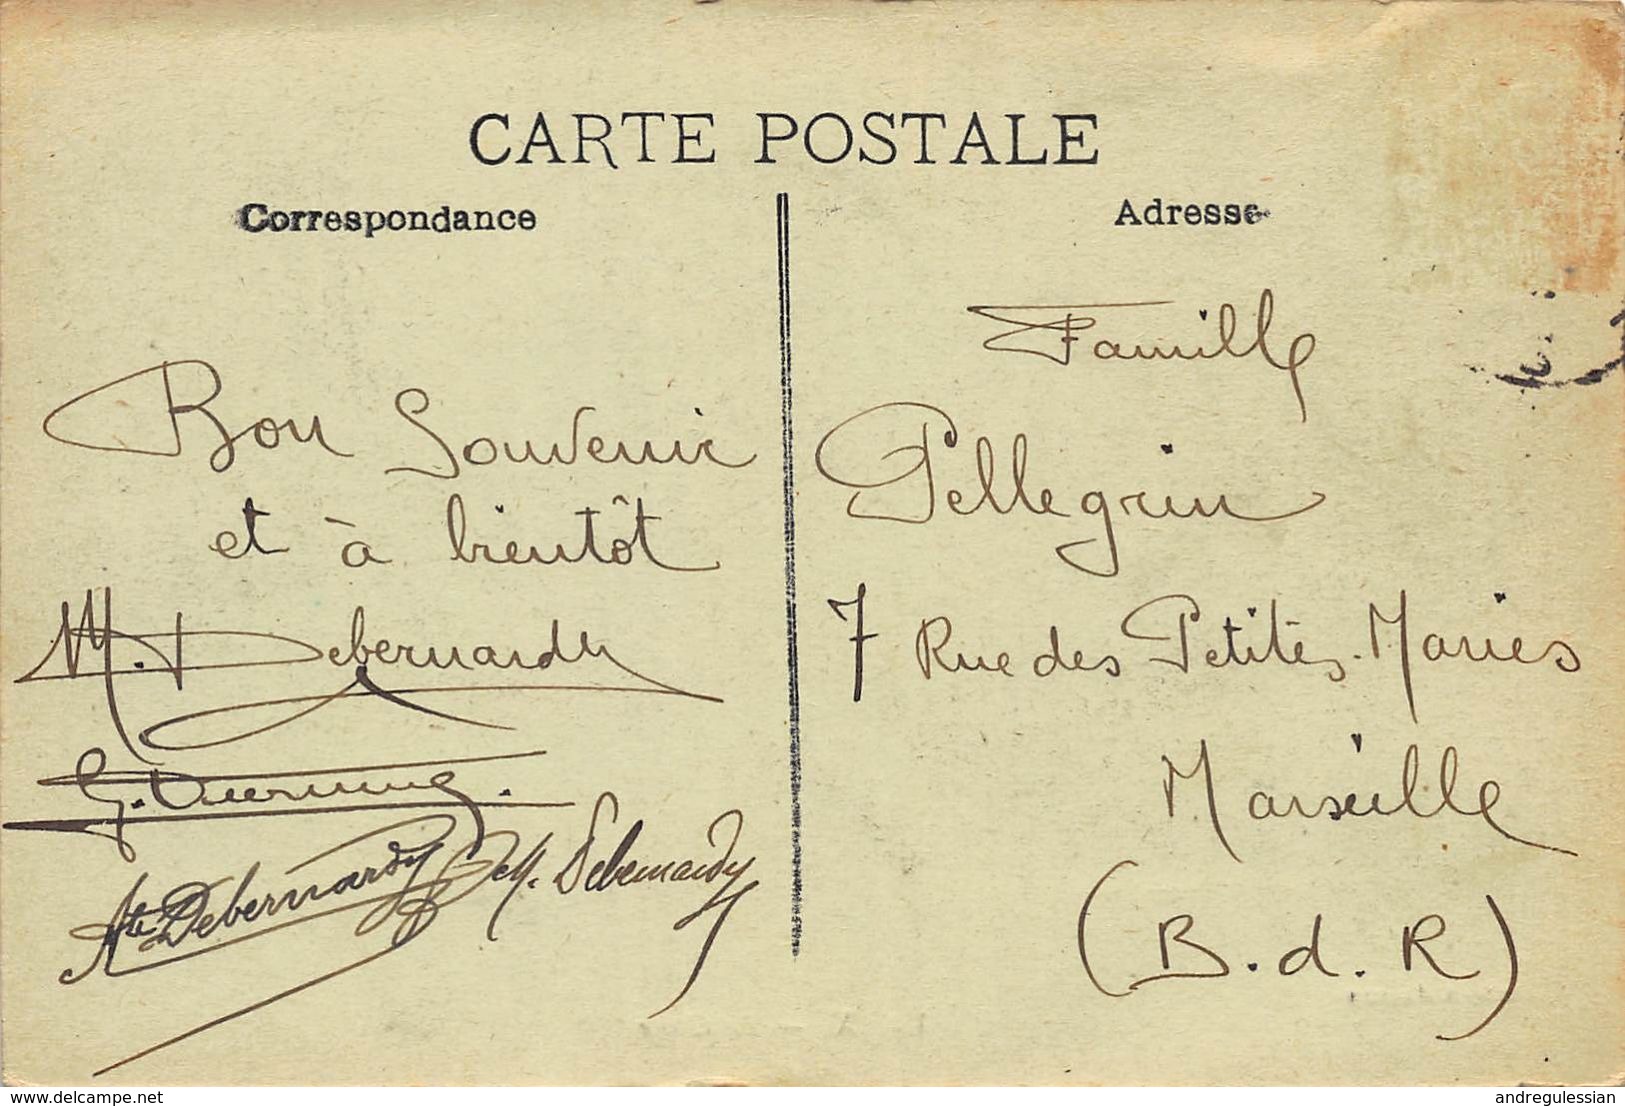 CARTE POSTALE
Correspondance
Adresse
Bon Souvenir
et à bientôt
M. Debernardy
G.
Ate Debernardy
M. Debernardy
Famille
Pellegrin
7 Rue des Petites Maries
Marseille
(B.d.R)
www.delcampe.net
andregulessian